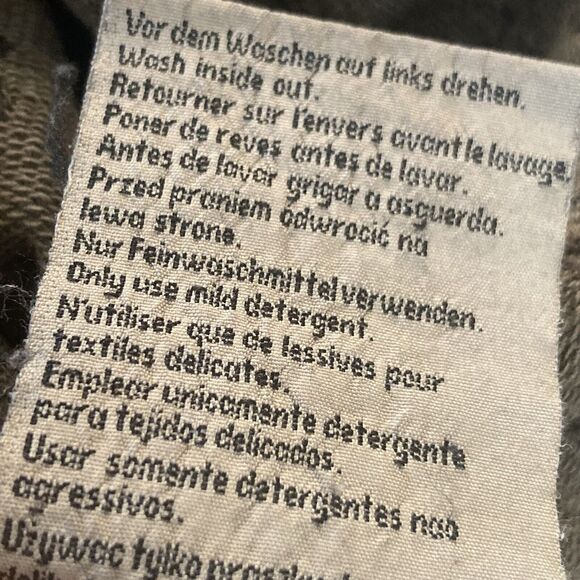 Vor dem Waschen auf links drehen.
Wash inside out.
Retourner sur l'envers avant le lavage.
Poner de reves antes de lavar.
Antes de lavar grigar a asguerda.
Przed praniem odwrocić na
lewa strone.
Nur Feinwaschmittel verwenden.
Only use mild detergent.
N'utiliser que de lessives pour
textiles delicates.
Emplear unicamente detergente
para tejidos delicados.
Usar somente detergentes nao
agressivos.
Używac tylko